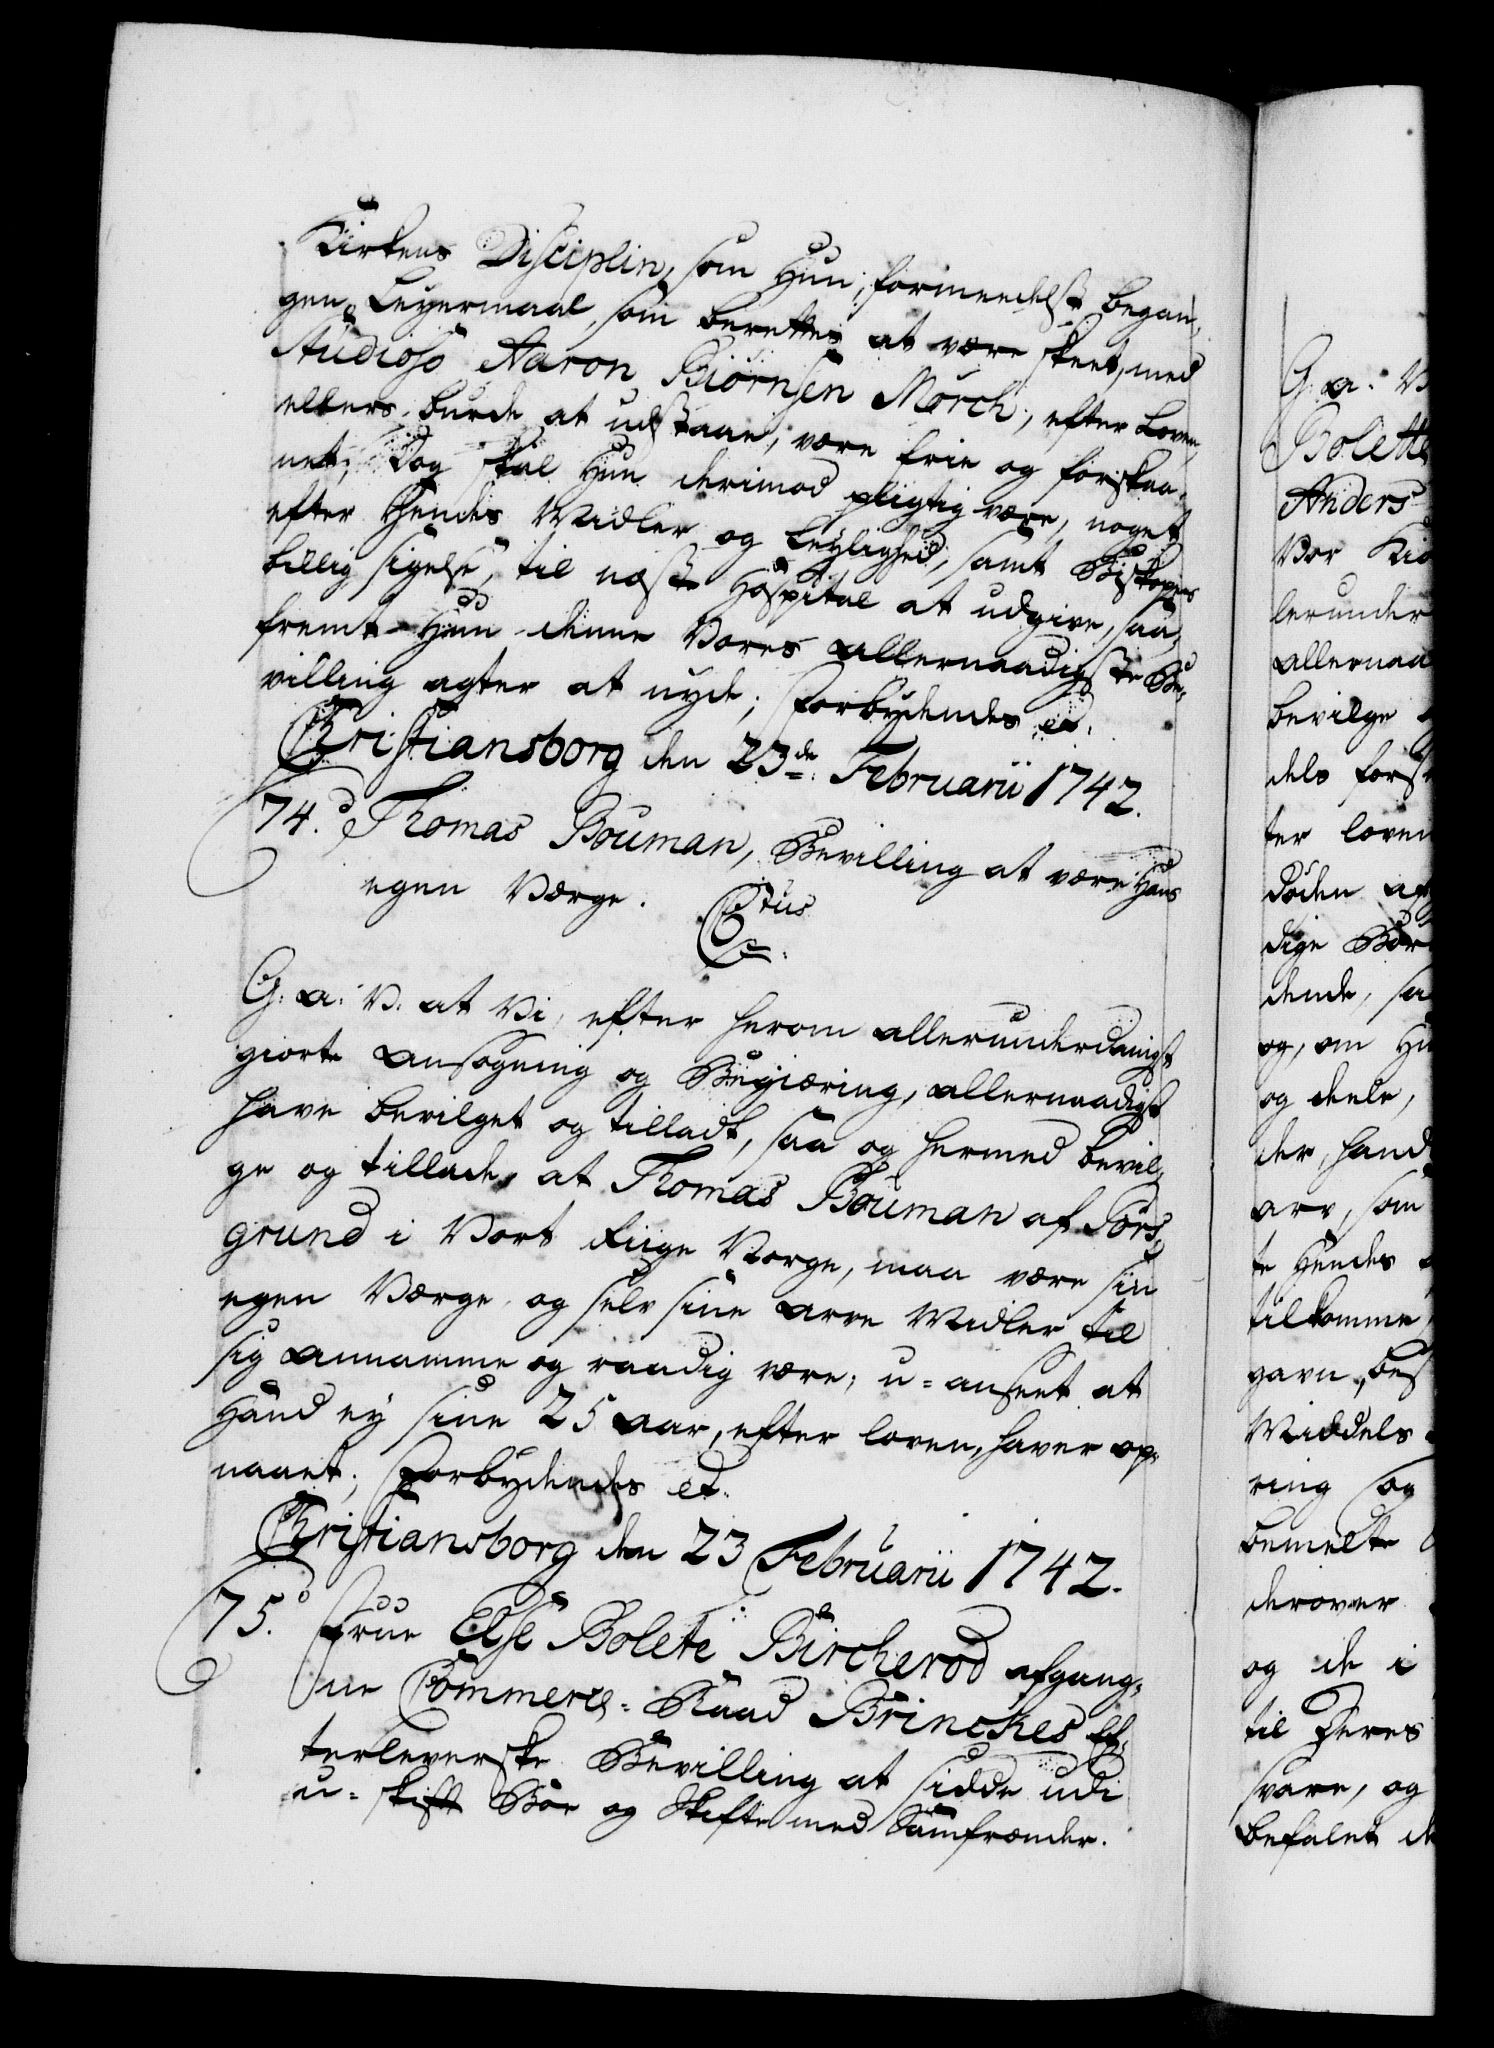 Kirkens Disciplin, som Hun, formeedelst began,
gen Leyermaal, som berettes at være skeet, med
Studioso Aaron Biørnsen Mørch, efter Loven
ellers burde at udstaae, være frie og forskaa-
net; Dog skal Hun derimod pligtig være, noget
efter Hendes Midler og Leylighed, samt Biskopens
billig sigelse, til næste Hospital at udgive, saa,
fremt Hun denne Vores allernaadigste Be-
villing agter at nyde; Forbydendes et.
Christiansborg den 23de Februarii 1742.
74. Thomas Bouman, Bevilling at være Hans
egen Værge.
C6tus
G. a. V. at Vi, efter herom allerunderdanigst
giorte Ansøgning og Begiæring, allernaadigst
have bevilget og tilladt, saa og hermed bevil,
ge og tillade, at Thomas Bouman af Pors,
grund i Vort Riige Norge, maa være sin
egen Værge og selv sine Arve Midler til
sig annamme og raadig være, u-anseet at
Hand ey sine 25 Aar, efter loven, haver op-
naaet; Forbydendes et.
Christiansborg den 23 Februarii 1742.
75. Frue Else Bolete Bircherod afgang,
ne Commerce-Raad Brinckes Ef,
terleverske Bevilling at sidde udi
u-skift Boe og Skifte med Samfrænder.
G. a. V
Bolette
Anders
Vor Kiø
lerunder
allernaa
bevilge
dels forst
ter loven
Døden af
dige Bør
dende, sa
og, om Hu
og deele,
der, hand
arv, som
te Hendes
tilkomme
gavn, bes
Middels
ring og
bemelte
derover
og de i
til Deres
svare, og
befalet de